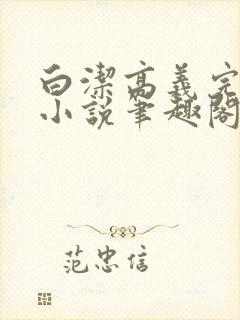 白潔高義完
小說筆趣閣
范忠信